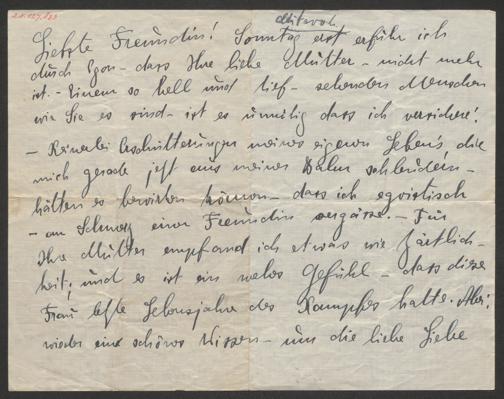 Liebste Freundin! Sonntag erst erfuhr ich
durch Egon – dass Ihre liebe Mutter – nicht mehr
ist. – Einem so hell und tief – sehenden Menschen
wie Sie es sind – ist es unnötig dass ich versichere!
– Keinerlei Erschütterungen meines eigenen Lebens die
mich gerade jetzt aus meiner Bahn schleudern –
hätten es bewirken können – dass ich egoistisch
– am Schmerz einer Freundin vergässe. – Für
Ihre Mutter empfand ich etwas wie Zärtlich-
keit; und es ist ein wehes Gefühl – dass diese
Frau letzte Lebensjahre des Kampfes hatte. Aber!
wieder ein schönes Wissen – um die liebe Liebe